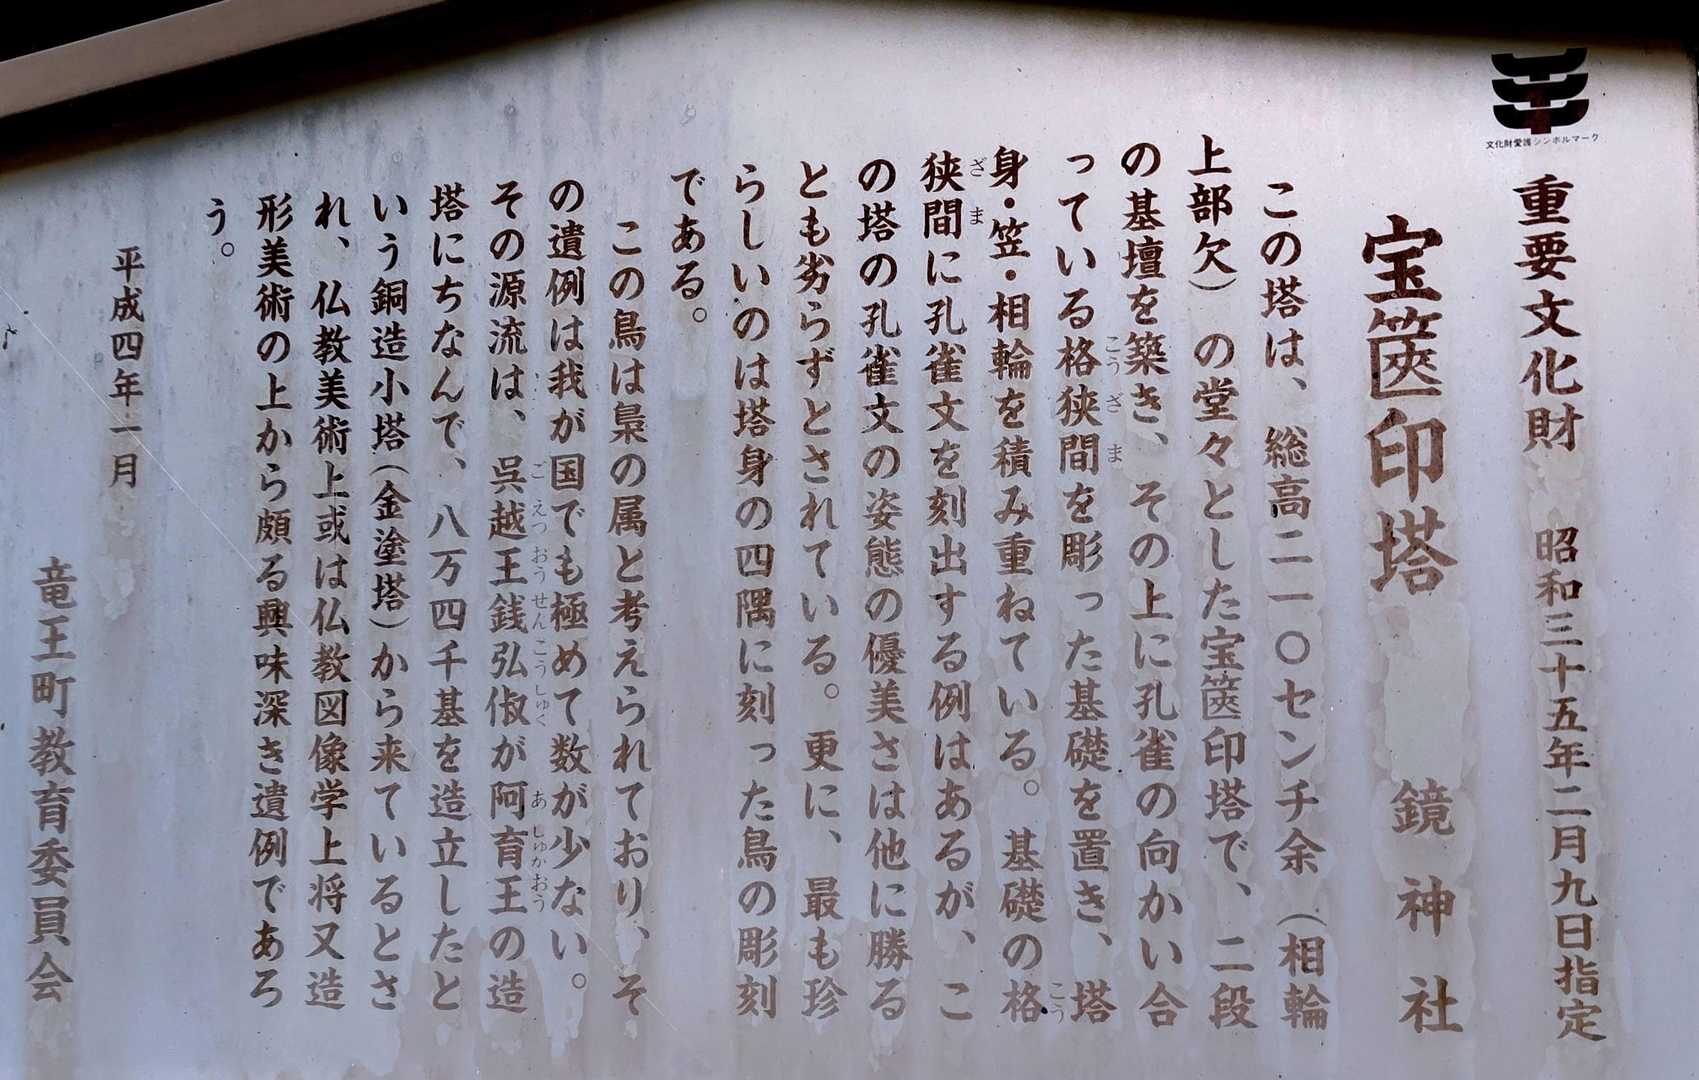 文化財愛護シンボルマーク
重要文化財　昭和三十五年二月九日指定
宝篋印塔　鏡神社
この塔は、総高二一〇センチ余（相輪
上部欠）の堂々とした宝篋印塔で、二段
の基壇を築き、その上に孔雀の向かい合
っている格狭間を彫った基礎を置き、塔
身・笠・相輪を積み重ねている。基礎の格
狭間に孔雀文を刻出する例はあるが、こ
の塔の孔雀文の姿態の優美さは他に勝る
とも劣らずとされている。更に、最も珍
らしいのは塔身の四隅に刻った鳥の彫刻
である。
この鳥は梟の属と考えられており、そ
の遺例は我が国でも極めて数が少ない。
その源流は、呉越王銭弘俶が阿育王の造
塔にちなんで、八万四千基を造立したと
いう銅造小塔（金塗塔）から来ているとさ
れ、仏教美術上或は仏教図像学上将又造
形美術の上から頗る興味深き遺例であろ
う。
平成四年一月
竜王町教育委員会